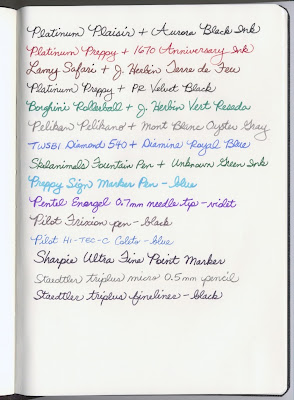 Platinum Plaisir + Aurora Black Ink
Platinum Preppy + 1670 Anniversary Ink
Lamy Safari + J. Herbin Terre de Feu
Platinum Preppy + PR Velvet Black
Borghini Rollerball + J. Herbin Vert Reseda
Pelikan Pelikano + Mont Blanc Oyster Gray
TWSBI Diamond 540 + Diamine Royal Blue
Skelanimals Fountain Pen + Unknown Green Ink
Preppy Sign Marker Pen - blue
Pentel Energel 0.7mm needle tip - violet
Pilot Frixion pen - black
Pilot HI-TEC-C Coleto - blue
Sharpie Ultra Fine Point Marker
Staedtler triplus micro 0.5mm pencil
Staedtler triplus fineliner - black